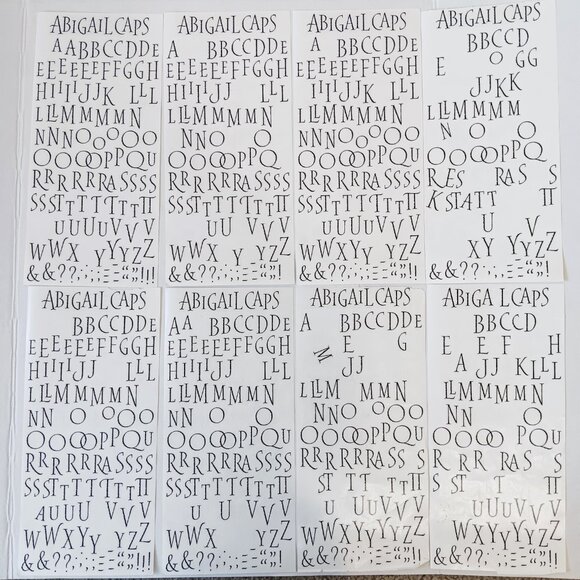 ABIGAIL CAPS
AABBCCDDE
EEEEEEFFGGH
HIIIJJK LLL
LLMMMMN
NNNOOOOO
OOOOPPQU
RRRRRRASSSS
SSSTTTTTTTT
UUUUVVV
WWXYYYZZ
ABIGAIL CAPS
A BBCCDDE
EEEEEEFFGGH
HIIIJJ LLL
LLMMMMN
NNO O
OOOOPPQU
RRRRRRASSSS
SSSTTTTTTTT
UUVVV
WWX YYZZ
ABIGAIL CAPS
A BBCCDDE
EEEEEEFFGGH
IIIJJK LLL
LLMMMMN
NNNOOOOO
OOOOPPQU
RRRRRRASSSS
SSSTTTTTTTT
UUUUVVV
WWX YYZZ
ABIGAIL CAPS
BBCCD
E O GG
JJKK
LLMMMM
N O O
OOOOPPQ
RES RAS S
KSTATT TT
U
XY YYZZ
ABIGAIL CAPS
BBCCDDE
EEEEEEFFGGH
HIIIJJ LLL
LLMMMMN
NN O O
OOOOPPQU
RRRRRRASSSS
SSSTTTTTTTT
AUUVVV
WWXYYYZZ
ABIGAIL CAPS
AA BBCCDDE
EEEEEEFFGGH
HIIIJJ LLL
LLMMMMN
NN O O
OOOOPPQU
RRRRRRASSSS
SSSTTTTTTTT
U UVVV
WWX YYZZ
ABIGAIL CAPS
A BBCCDDE
E G
M JJ
LLM MMN
NNOOOOO
OOOOPPQU
RRRRRRAS S
ST TT TTT
UUUUVVV
WWXYYYYZZ
ABIGA L CAPS
BBCCD
E EF H
A JJ KLLL
LLMMMMN
NN O
OOOOPPQU
R RR RAS S
S ST T TT
UUUUVVV
WWXYYYYZZ